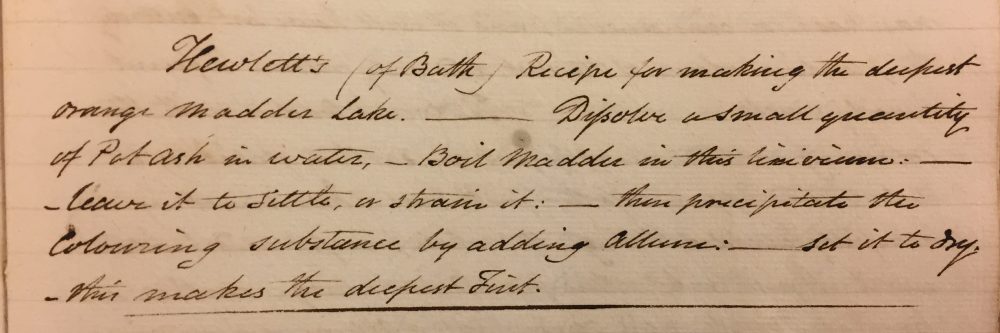 Hewlett's (of Bath) Recipe for making the deepest
orange Madder Lake. —— Dissolve a small quantity
of Pot Ash in water, – Boil Madder in this lixivium: —
– leave it to settle, or strain it: — then precipitate the
Colouring substance by adding Allum: — set it to dry.
– this makes the deepest Tint.